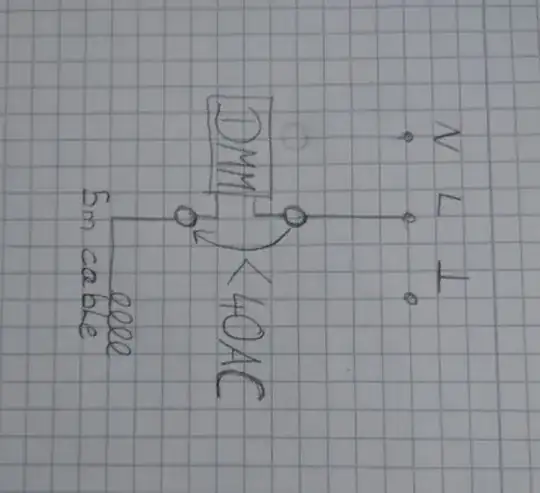 N
L
DMM
< 40AC
5m cable